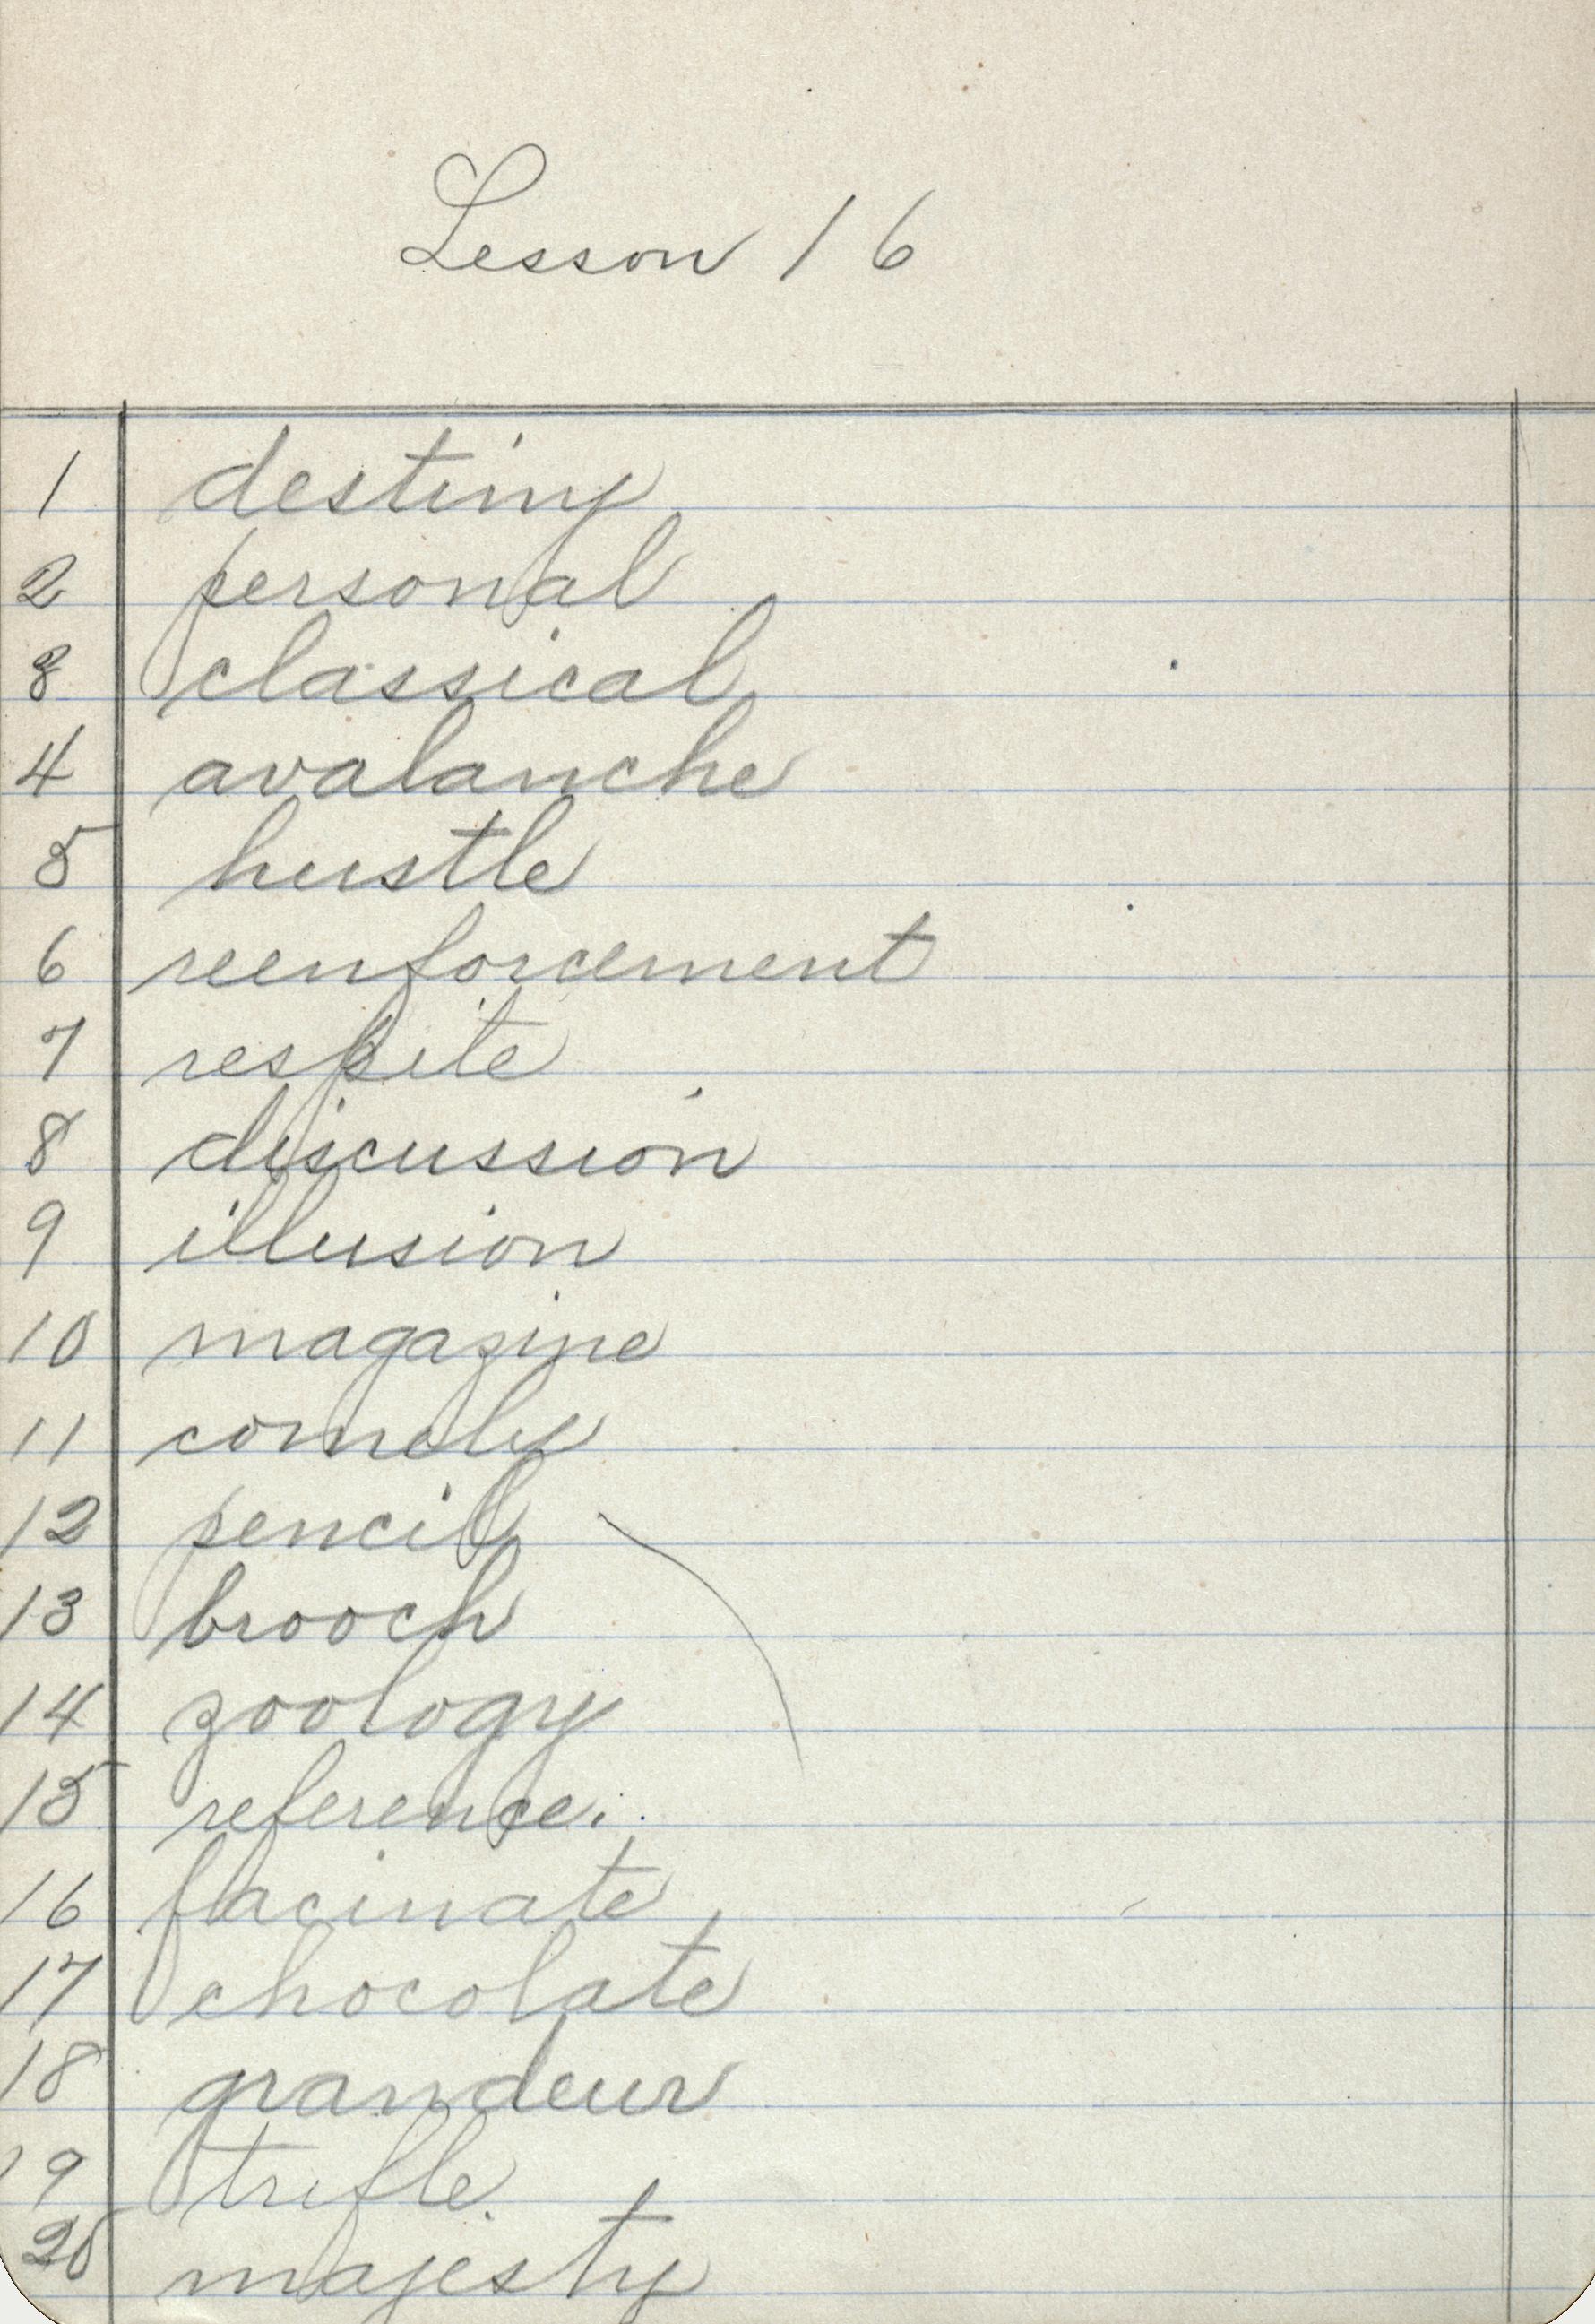 Lesson 16
1 destiny
2 personal
3 classical
4 avalanche
5 hustle
6 reenforcement
7 respite
8 discussion
9 illusion
10 magazine
11 comely
12 pencil
13 brooch
14 zoology
15 reference.
16 facinate
17 chocolate
18 grandeur
19 trifle.
20 majesty